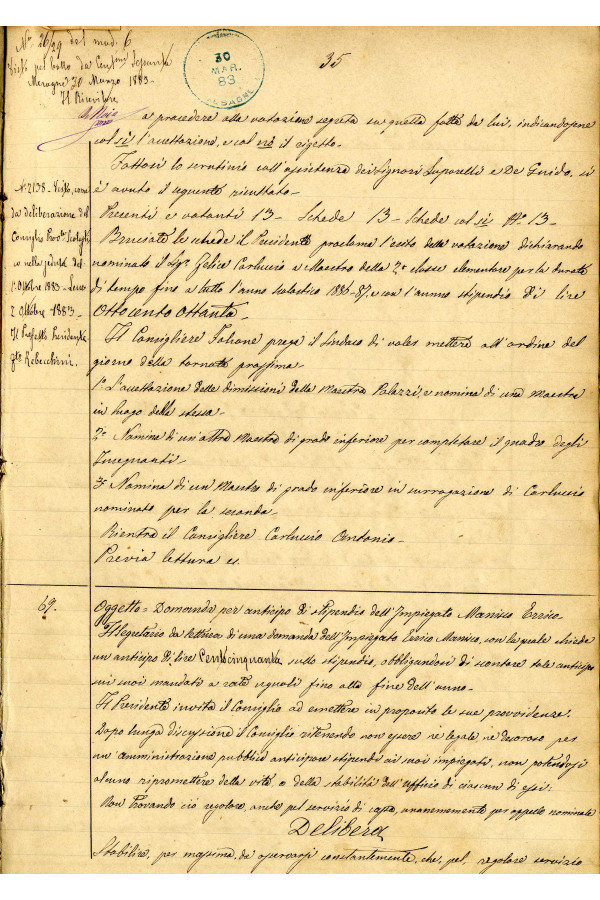 N.º 26/29 del mod. 6
Visto pel bollo da Cent.mi Sessanta
Mesagne 30 Marzo 1883.
Il Ricevitore
30
MAR.
83
35
a procedere alla votazione segreta su quella fatta da lui, indicandosene
col sì l'accettazione, e col nò il rigetto.
Fattosi lo scrutinio coll'assistenza dei Signori Saporelli e De Guido, si
è avuto il seguente risultato.
Presenti e votanti 13 - Schede 13 - Schede col sì N.º 13 -
Bruciate le schede il Presidente proclama l'esito della votazione dichiarando
nominato il Sig.r Felice Carluccio a Maestro della 2ª classe elementare per la durata
di tempo fino a tutto l'anno scolastico 1886-87, e con l'annuo stipendio di lire
Ottocento Ottanta -
Il Consigliere prega il Sindaco di voler mettere all'ordine del
giorno della tornata prossima.
1º L'accettazione delle dimissioni della Maestra Palazzi, e nomina di una Maestra
in luogo della stessa -
2º Nomina di un'altra Maestra di grado inferiore per completare il quadro degli
Insegnanti -
3º Nomina di un Maestro di grado inferiore in surrogazione di Carluccio
nominato per la seconda -
Rientra il Consigliere Carluccio Antonio -
Previa lettura es.
N. 2138 - Visto, come
da deliberazione del
Consiglio Prov.le Scolasti
co nella seduta del
1º Ottobre 1883 - Lecce
2 Ottobre 1883 -
Il Prefetto Presidente
f.to Rebecchini.
69.
Oggetto = Domanda per anticipo di stipendio dell'Impiegato Maniso Errico -
Il Segretario dà lettura di una domanda dell'Impiegato Errico Maniso, con la quale chiede
un anticipo di lire Centocinquanta sullo stipendio, obbligandosi di scontare tale anticipo
sui suoi mandati a rate uguali fino alla fine dell'anno -
Il Presidente invita il Consiglio ad emettere in proposito le sue provvidenze.
Dopo lunga discussione il Consiglio ritenendo non essere nè legale, nè decoroso per
un'amministrazione pubblica anticipare stipendi ai suoi impiegati, non potendosi
alcuno ripromettere della vita, o della stabilità dell'ufficio di ciascun di essi:
Non trovando ciò regolare, anche pel servizio di cassa, unanimemente per appello nominale
Delibera
Stabilire, per massima, da osservarsi constantemente, che, pel regolare servizio